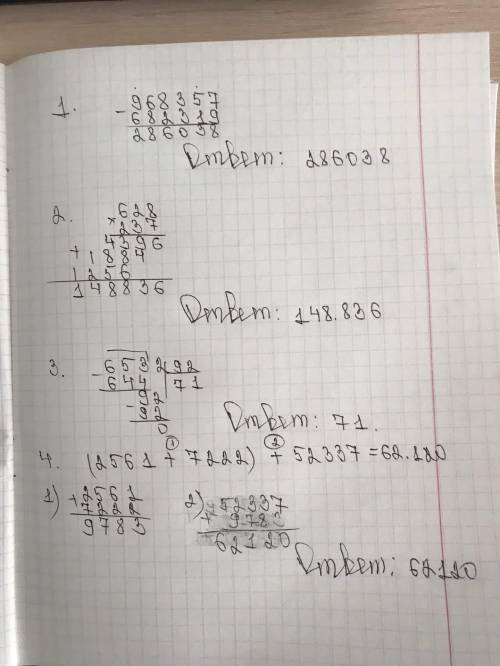 1. 968357
- 682319
286038
Ответ: 286038
2. 628
× 237
4396
+ 1884
1256
148836
Ответ: 148.836
3. - 6532 | 92
644 71
- 92
92
0
Ответ: 71.
① ②
4. (2561 + 7222) + 52337 = 62.120
1) + 2561 2) + 52337
7222 978
9783 62120
Ответ: 62120